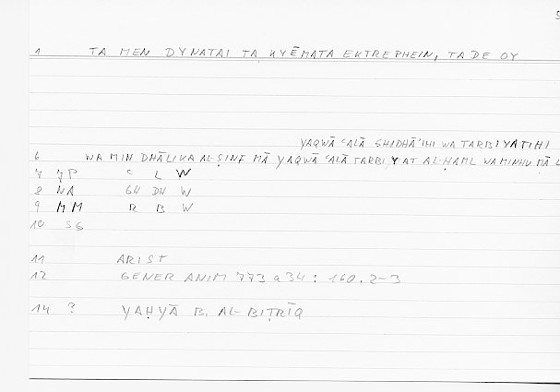 1 TA MEN DYNATAI TA KYĒMATA EKTREPHEIN, TA DE OY
YAQWĀ ʿALĀ GHIDHĀʾIHI WA TARBIYATIHI
6 WA MIN DHĀLIKA AL-ṢINF MĀ YAQWĀ ʿALĀ TARBIYAT AL-ḤAML WA MINHU MĀ L
7 YP C L W
8 NA GH DH W
9 MM R B W
10 SG
11 ARIST
12 GENER ANIM 773 a 34 : 160.2-3
14 ? YAḤYĀ B. AL-BIṬRĪQ